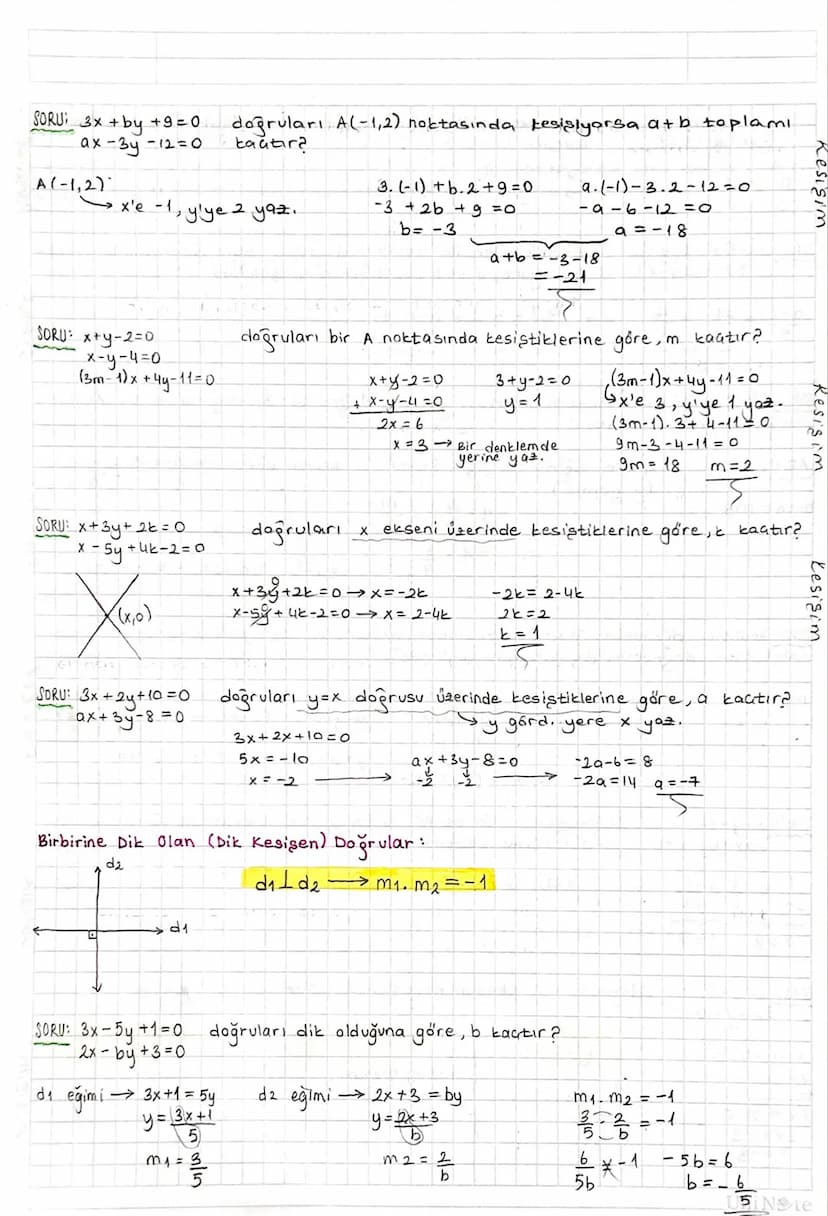 SORU: 3x+by+9=0 doğruları A(-1,2) noktasında kesişiyorsa a+b toplamı
ax-3y-12=0 kaçtır?
A(-1,2)
→ x'e -1, y'ye 2 yaz.
3.(-1)+b.2+9=0
-3+2b+9=0
b=-3
a.(-1)-3.2-12=0
-a-6-12=0
a=-18
a+b=-3-18
=-21
Kesişim
SORU: x+y-2=0 doğruları bir A noktasında kesiştiklerine göre, m kaçtır?
x-y-4=0
(3m-1)x+4y-11=0
x+y-2=0
+ x-y-4=0
2x=6
x=3 → Bir denklemde
yerine yaz.
3+y-2=0
y=1
(3m-1)x+4y-11=0
↳ x'e 3, y'ye 1 yaz.
(3m-1).3+4-11=0
9m-3-4-11=0
9m=18 m=2
Kesişim
SORU: x+3y+2k=0 doğruları x ekseni üzerinde kesiştiklerine göre, k kaçtır?
x-5y+4k-2=0
(x,0)
0
x+3y+2k=0 → x=-2k
0
x-5y+4k-2=0 → x=2-4k
-2k=2-4k
2k=2
k=1
Kesişim
SORU: 3x+2y+10=0 doğruları y=x doğrusu üzerinde kesiştiklerine göre, a kaçtır?
ax+3y-8=0
→ y görd. yere x yaz.
3x+2x+10=0
5x=-10
x=-2 →
ax+3y-8=0
-2 -2 →
-2a-6=8
-2a=14 a=-7
Birbirine Dik Olan (Dik Kesişen) Doğrular:
d2
d1
d1⊥d2 → m1.m2=-1
SORU: 3x-5y+1=0 doğruları dik olduğuna göre, b kaçtır?
2x-by+3=0
d1 eğimi → 3x+1=5y
y=3x+1
5
m1=3/5
d2 eğimi → 2x+3=by
y=2x+3
b
m2=2/b
m1.m2=-1
3/5.2/b=-1
6/5b = -1 -5b=6
b=-6/5
UniNote